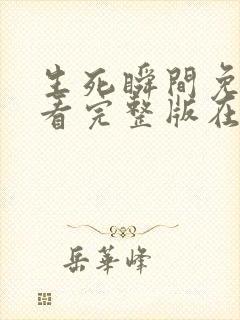 生死瞬間免
看完整版在
岳華峰